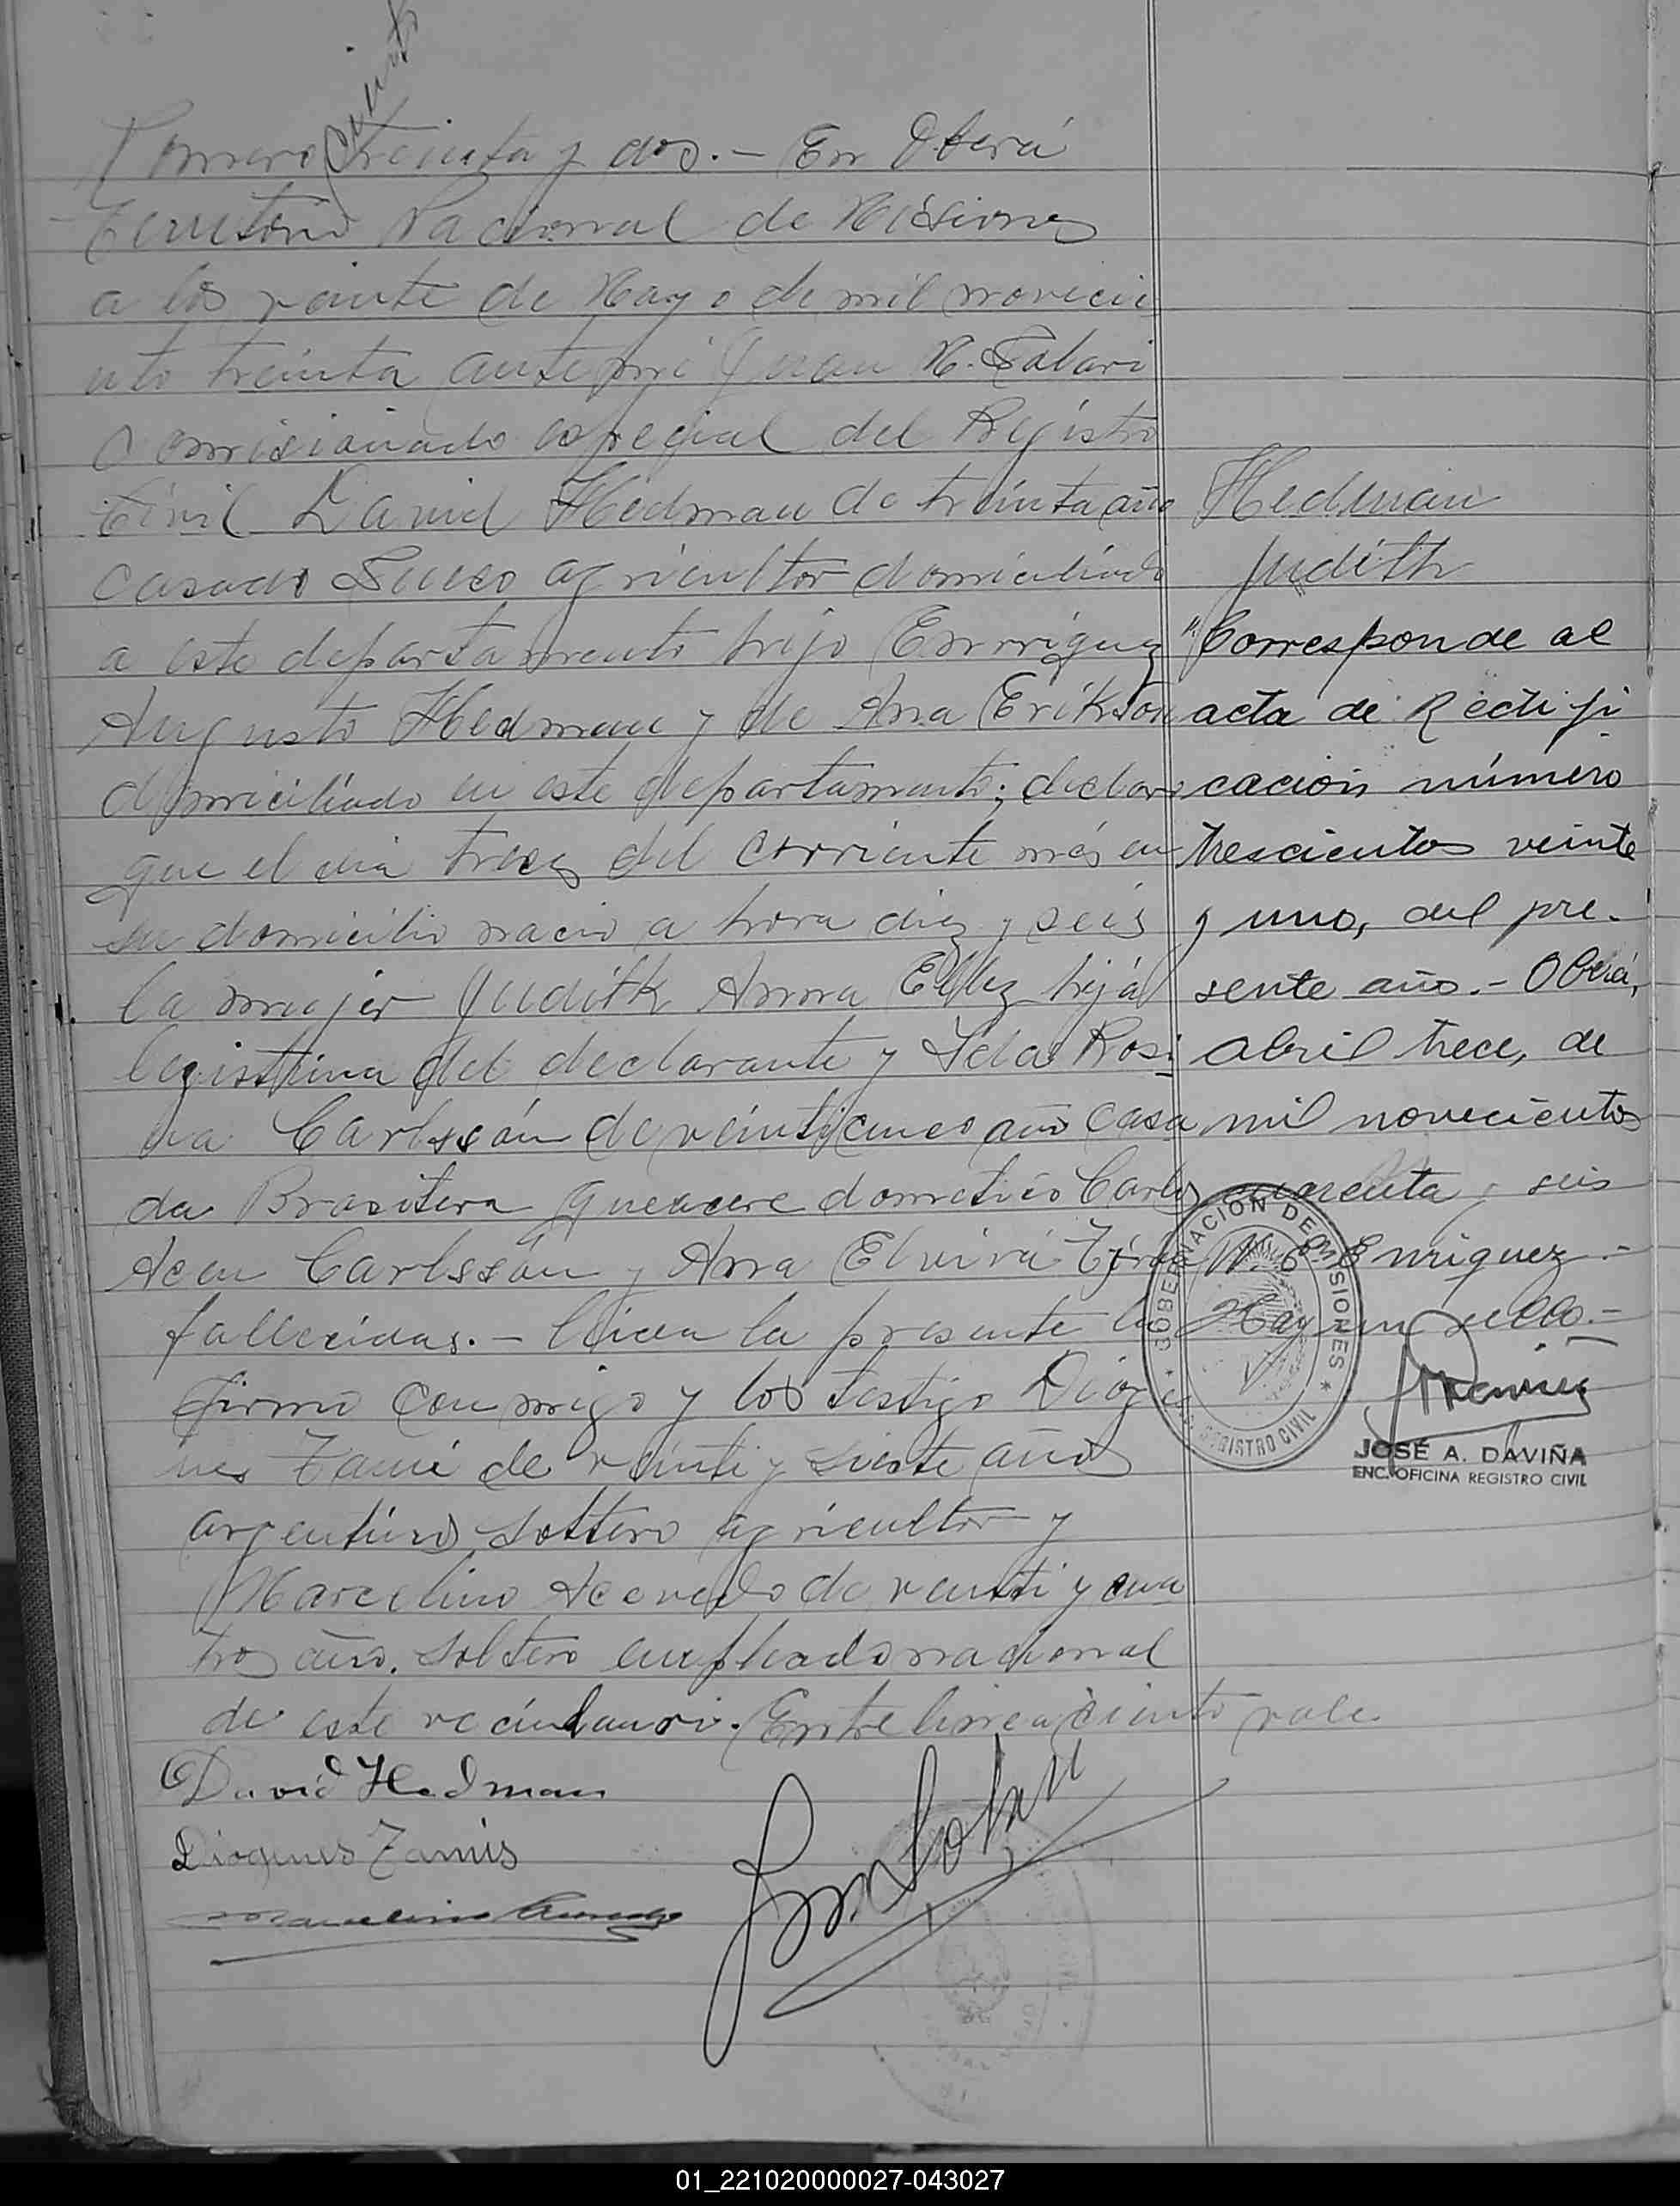 ciento
Numero treinta y dos. - En Oberá
Territorio Nacional de Misiones
a los veinte de Mayo de mil novecie
nto treinta ante mi Juan M. Sotari
Comisionado especial del Registro
Civil David Hedman de treinta año
casado Sueco agricultor domiciliado
a este departamento hijo Enrriquez
Augusto Hedman y de Ana Erikson
domiciliado en este departamento; declaro
que el dia trece del corriente més en
su domicilio nacio a hora diez y seis
la mujer Judith Anna hija
legistima del declarante y Rosi
na Carlssón de veinticinco año casa
da Brasilera quehacere dometico Carlos
Carlssón y Ana Elvira
fallecidas. - leida la presente la
firmo con migo y los testigo Dióge
nes de veinti y siete años
argentino soltero agricultor y
Marcelino Acevedo de veinti y cua
tro año. soltero empleado nacional
de este vecindario. Entre linea ciento vale.
David Hedman
Diogenes
Marcelino Acevedo
Hedman
Judith
"Corresponde al
acta de Rectifi
cación número
trescientos veinte
y uno, del pre-
sente año. - Oberá,
abril trece, de
mil novecientos
cuarenta y seis
N. E. Enriquez -
Hay un sello. -
GOBERNACION DE MISIONES
REGISTRO CIVIL
JOSÉ A. DAVIÑA
ENC. OFICINA REGISTRO CIVIL
01_221020000027-043027